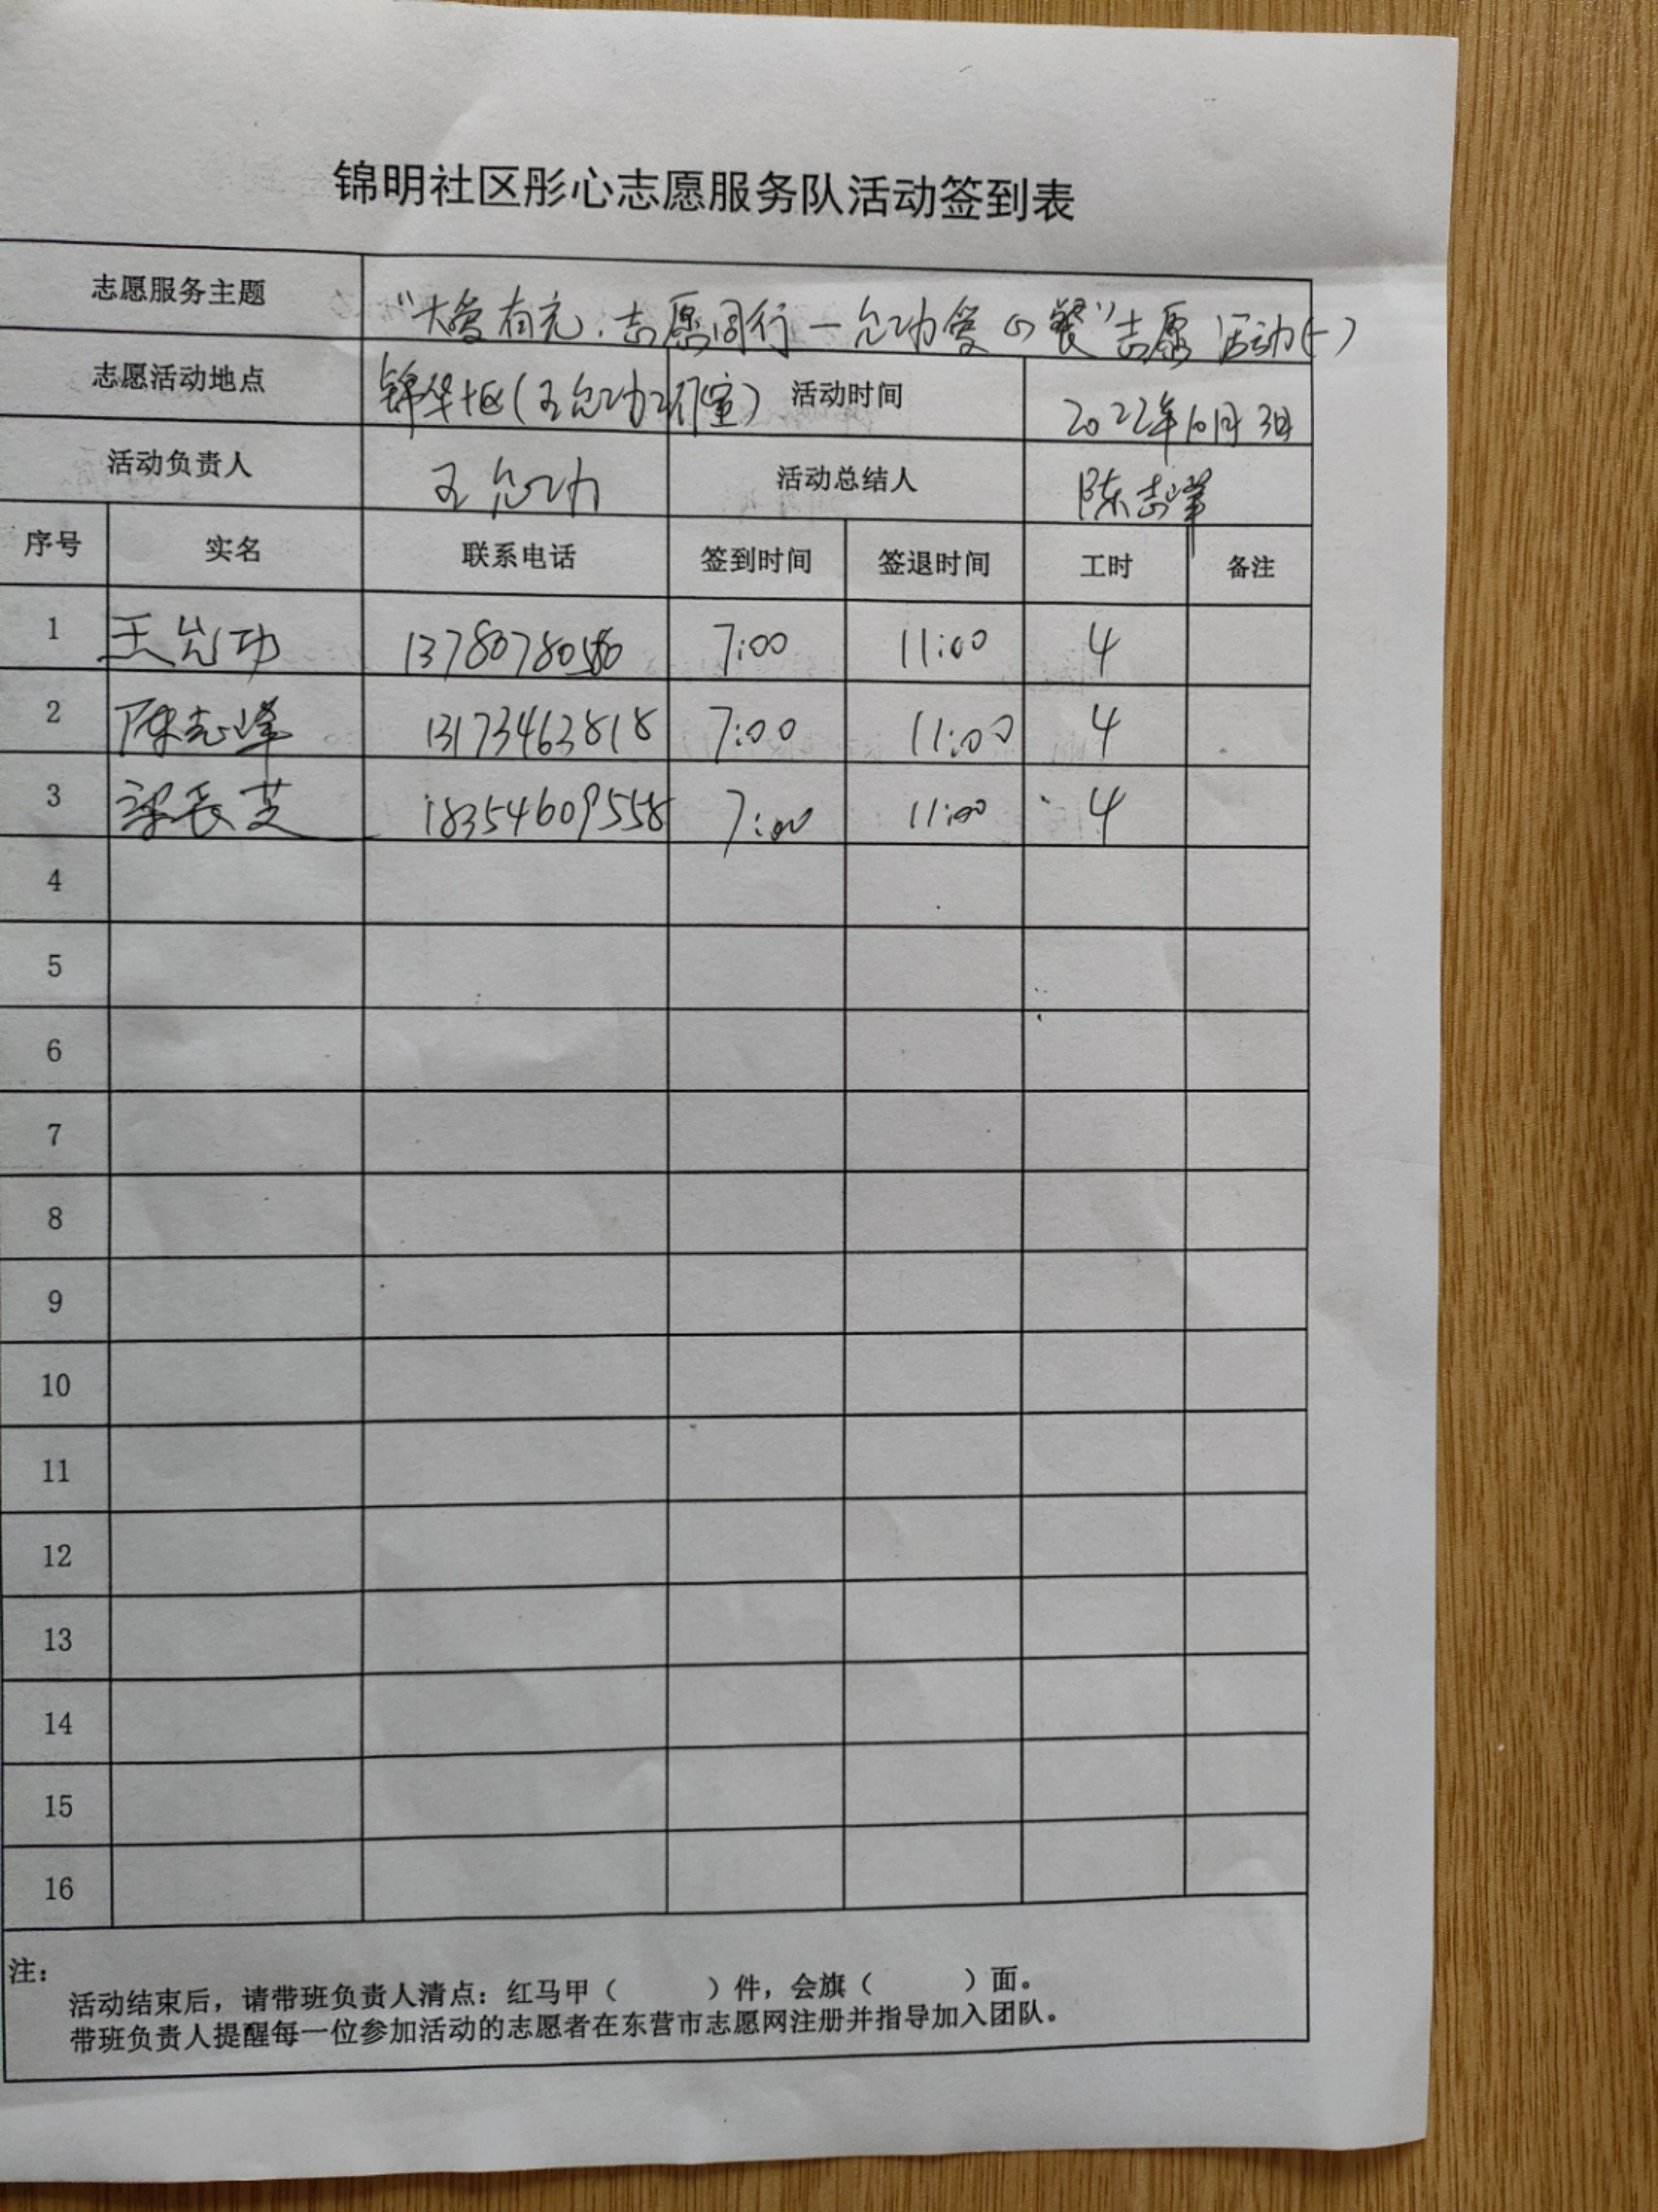 锦明社区彤心志愿服务队活动签到表
志愿服务主题 “大爱有充.志愿同行一允功爱心餐”志愿活动(一)
志愿活动地点 锦华社区(王允功工作室) 活动时间 2022年10月3日
活动负责人 王允功 活动总结人 陈志峰
序号 实名 联系电话 签到时间 签退时间 工时 备注
1 王允功 7:00 11:00 4
2 陈志峰 13173463818 7:00 11:00 4
3 梁长芝 18354609558 7:00 11:00 4
4
5
6
7
8
9
10
11
12
13
14
15
16
注：
活动结束后，请带班负责人清点：红马甲（ ）件，会旗（ ）面。
带班负责人提醒每一位参加活动的志愿者在东营市志愿网注册并指导加入团队。